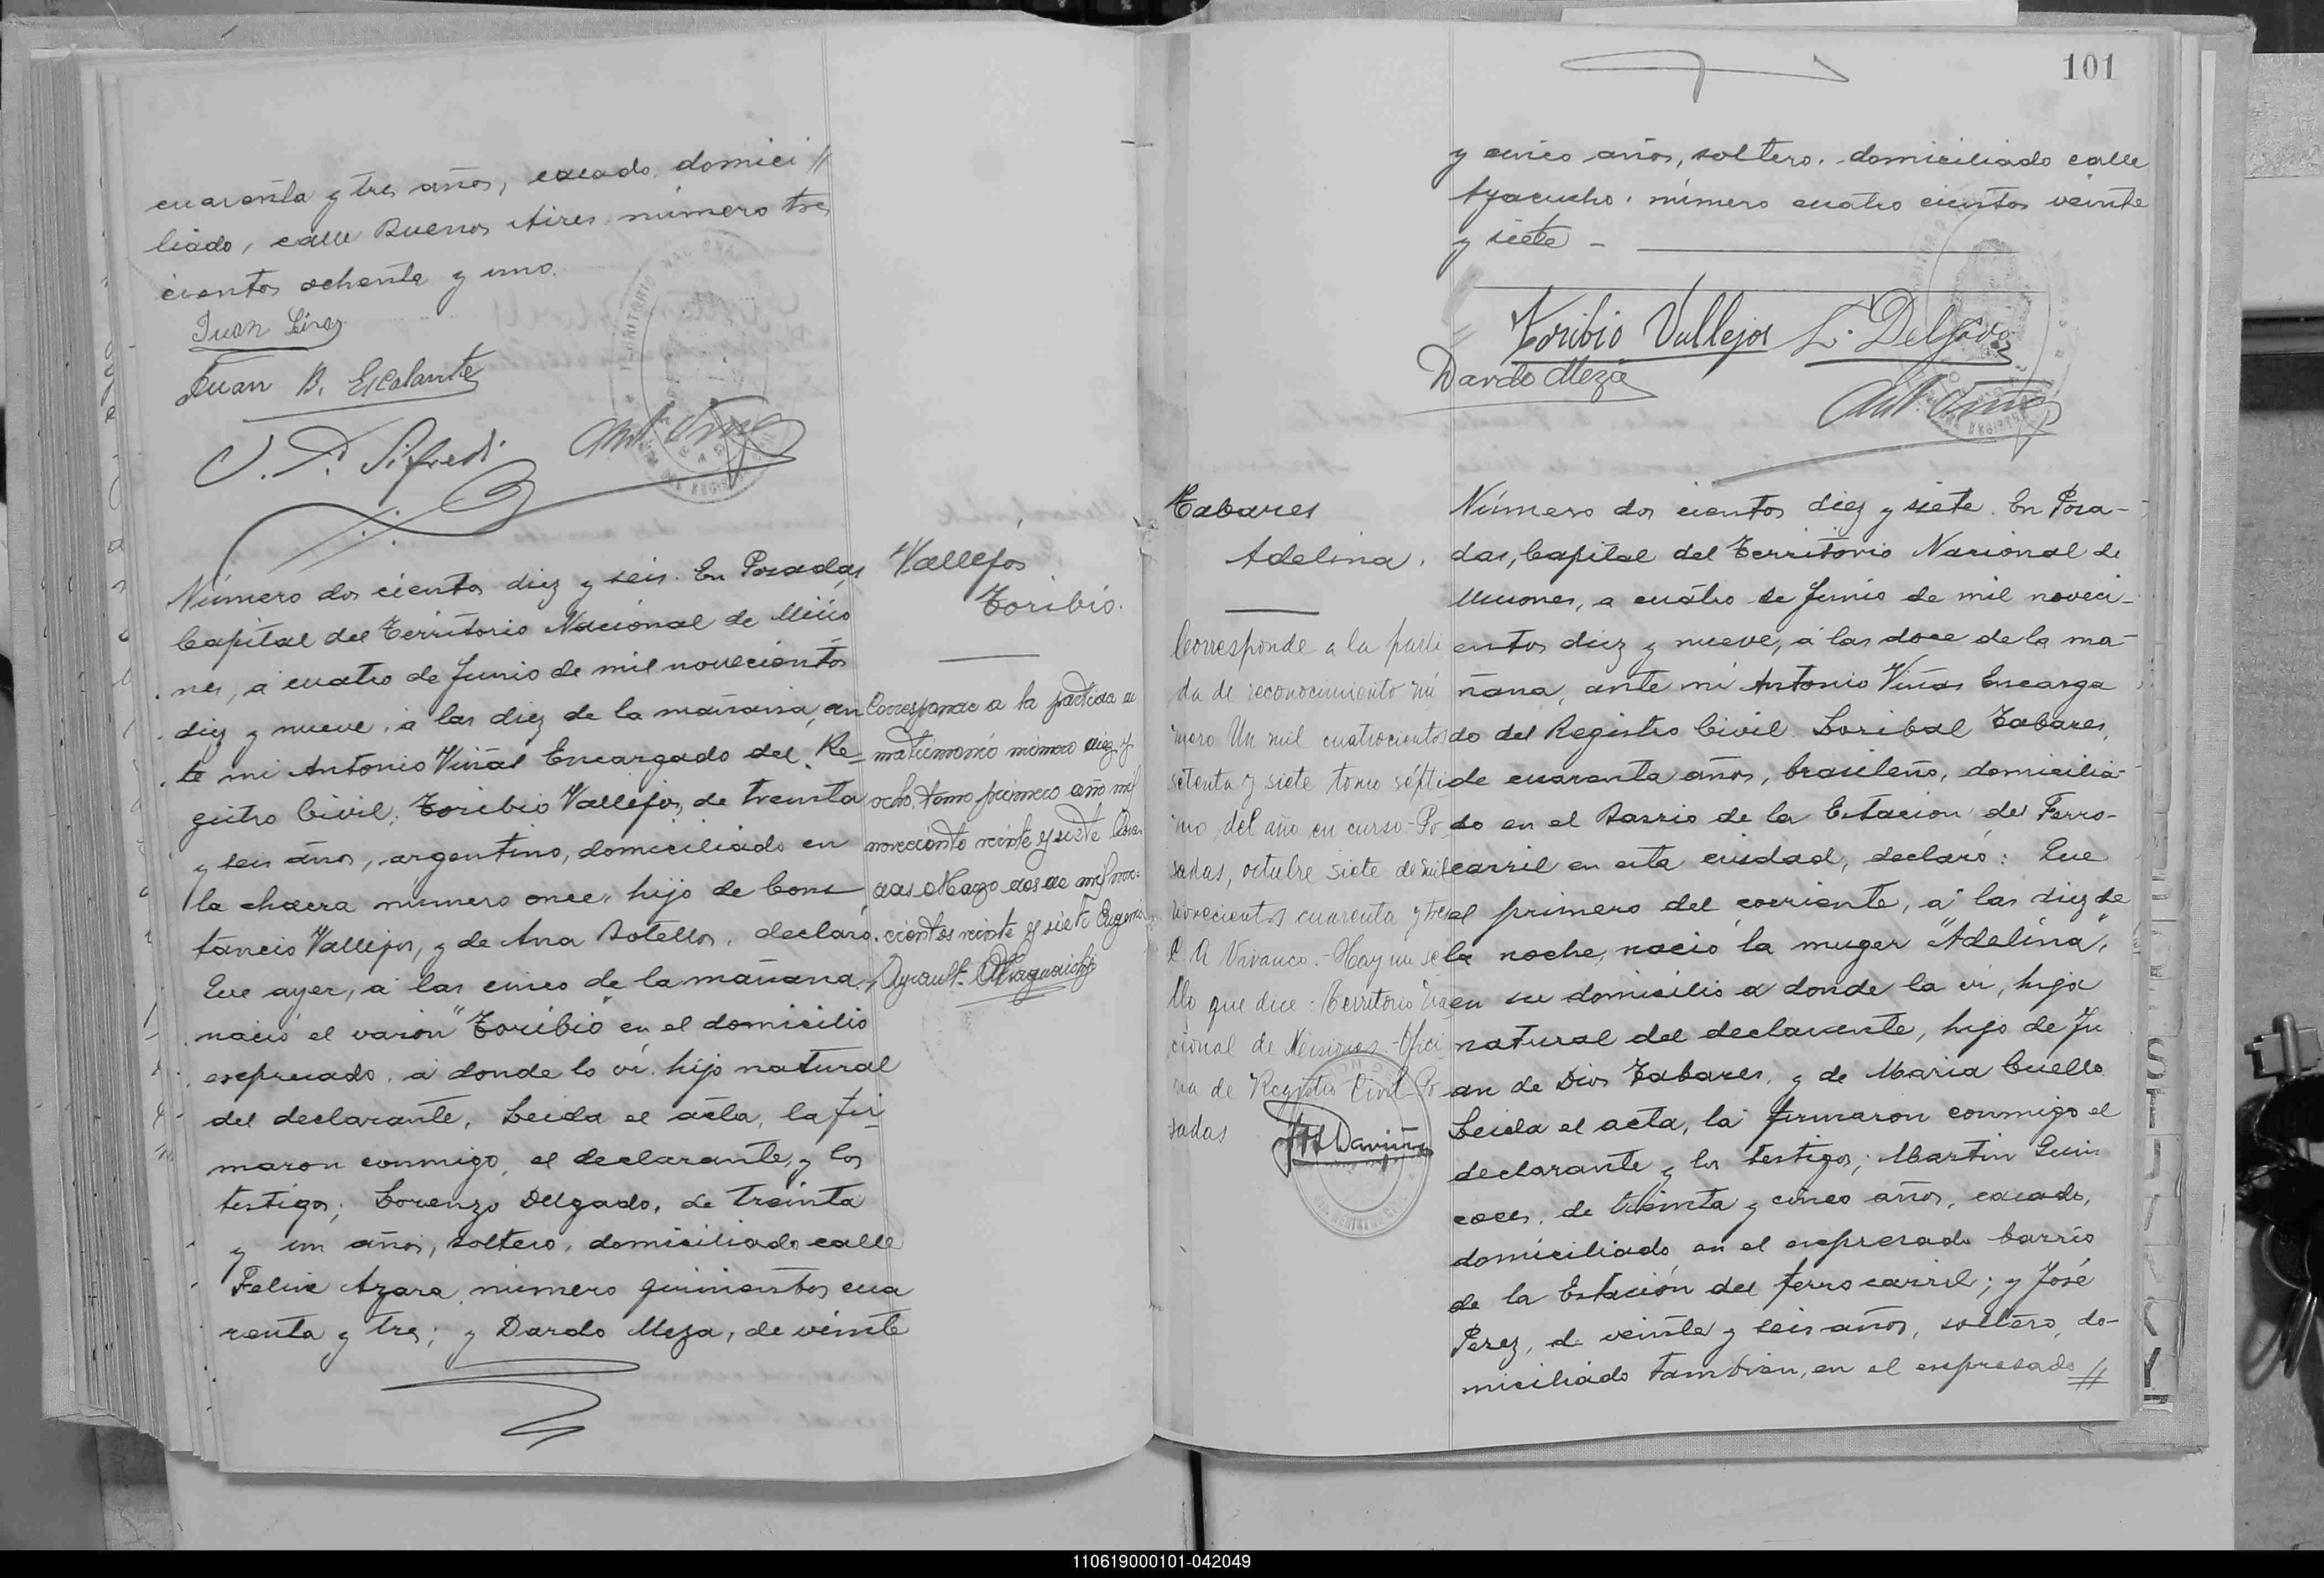 cuarenta y tres años, casado, domici//
liado, calle Buenos Aires número tres
cientos ochenta y uno.
Juan
Juan B. Escalante
J. P. Sifredi
Vallejos
Toribio.
Número dos cientos diez y seis. En Posadas
Capital del Territorio Nacional de Misio
nes, á cuatro de Junio de mil novecientos
diez y nueve, á las diez de la mañana, an
te mi Antonio Viñas Encargado del Re=
gistro Civil: Toribio Vallejos, de treinta
y seis años, argentino, domiciliado en
la chacra número once, hijo de Cons
tancio Vallejos, y de Ana Sotello, declaró:
Que ayer, á las cinco de la mañana,
nació el varón "Toribio" en el domicilio
expresado, á donde lo ví, hijo natural
del declarante. Leida el acta, la fir
maron conmigo, el declarante, y los
testigos; Lorenzo Delgado, de treinta
y un años, soltero, domiciliado calle
Felix Azara, número quinientos cua
renta y tres; y Dardo Meza, de veinte
Corresponde a la partida de
matrimonio número diez y
ocho, tomo primero año mil
novecientos veinte y siete Posa
das Marzo dos de mil nove-
cientos veinte y siete Eugenio
101
y cinco años, soltero, domiciliado calle
Ayacucho, número cuatro cientos veinte
y siete -
Toribio Vallejos L. Delgado
Dardo Meza
Tabares
Adelina.
Número dos cientos diez y siete. En Posa-
das, Capital del Territorio Nacional de
Misiones, a cuátro de Junio de mil noveci-
entos diez y nueve, á las doce de la ma-
ñana, ante mi Antonio Viñas Encarga
do del Registro Civil. Loribal Tabares,
de cuarenta años, brasileño, domicilia-
do en el Barrio de la Estacion del Ferro-
carril en esta ciudad, declaró: Que
el primero del corriente, á las diez de
la noche, nació la muger "Adelina",
en su domicilio a donde la ví, hija
natural del declarante, hijo de Ju
an de Dios Tabares, y de Maria Cuello.
Leida el acta, la firmaron conmigo el
declarante y los testigos; Martin Quin
coces, de treinta y cinco años, casado,
domiciliado en el expresado barrio
de la Estación del ferro carril; y José
Perez, de veinte y seis años, soltero, do-
miciliado tambien, en el expresado //
Corresponde a la parti
da de reconocimiento nú
mero Un mil cuatrocientos
setenta y siete tomo sépti
mo, del año en curso - Po
sadas, octubre siete de mil
novecientos cuarenta y tres
C. A. Vivanco. - Hay un se
llo que dice: Territorio Na
cional de Misiones - Ofici
na de Registro Civil - Po
sadas
110619000101-042049